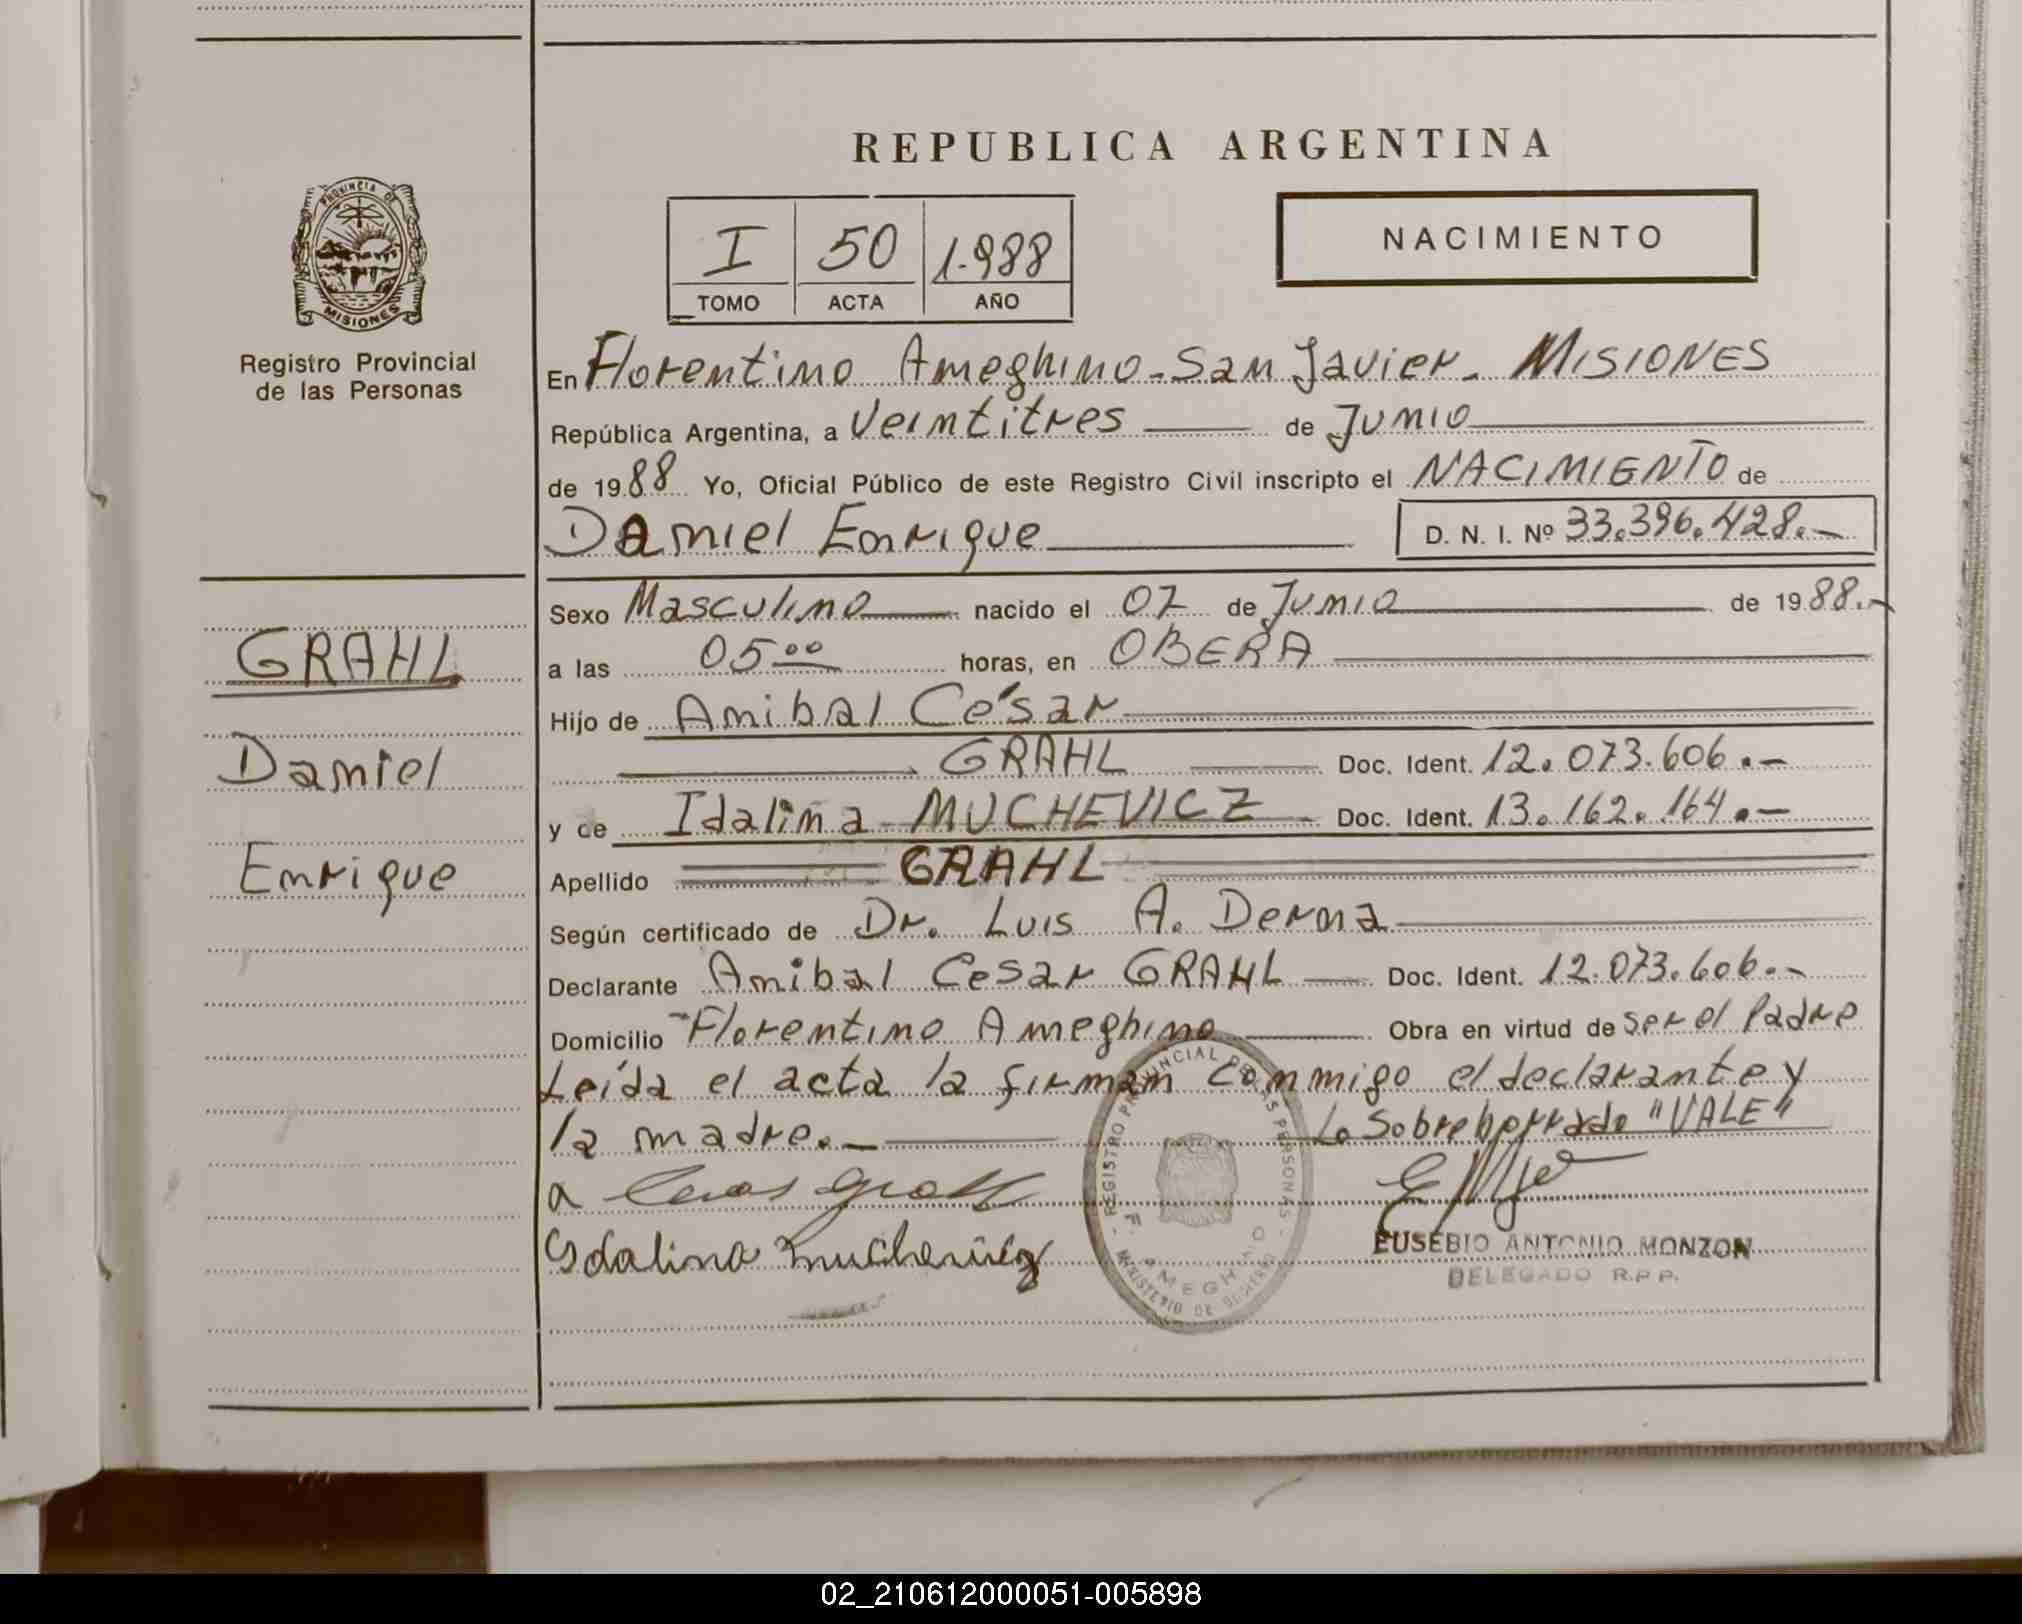 REPUBLICA ARGENTINA
PROVINCIA DE
MISIONES
Registro Provincial
de las Personas
I 50 1.988
TOMO ACTA AÑO
NACIMIENTO
En Florentino Ameghino - San Javier - MISIONES
República Argentina, a Veintitres de Junio
de 1988 Yo, Oficial Público de este Registro Civil inscripto el NACIMIENTO de
Daniel Enrique D. N. I. Nº 33.396.428.-
Sexo Masculino nacido el 07 de Junio de 1988.-
a las 05 00 horas, en OBERA
Hijo de Anibal César
GRAHL Doc. Ident. 12.073.606.-
y de Idalina MUCHEVICZ Doc. Ident. 13.162.164.-
Apellido GRAHL
Según certificado de Dr. Luis A. Derna
Declarante Anibal Cesar GRAHL Doc. Ident. 12.073.606.-
Domicilio Florentino Ameghino Obra en virtud de ser el Padre
Leída el acta la firman conmigo el declarante y
la madre.- Lo Sobreborrado "VALE"
Idalina Muchevicz
EUSEBIO ANTONIO MONZON
DELEGADO R.P.P.
REGISTRO PROVINCIAL DE LAS PERSONAS
F. AMEGHINO
MINISTERIO DE GOBIERNO
GRAHL
Daniel
Enrique
02_210612000051-005898